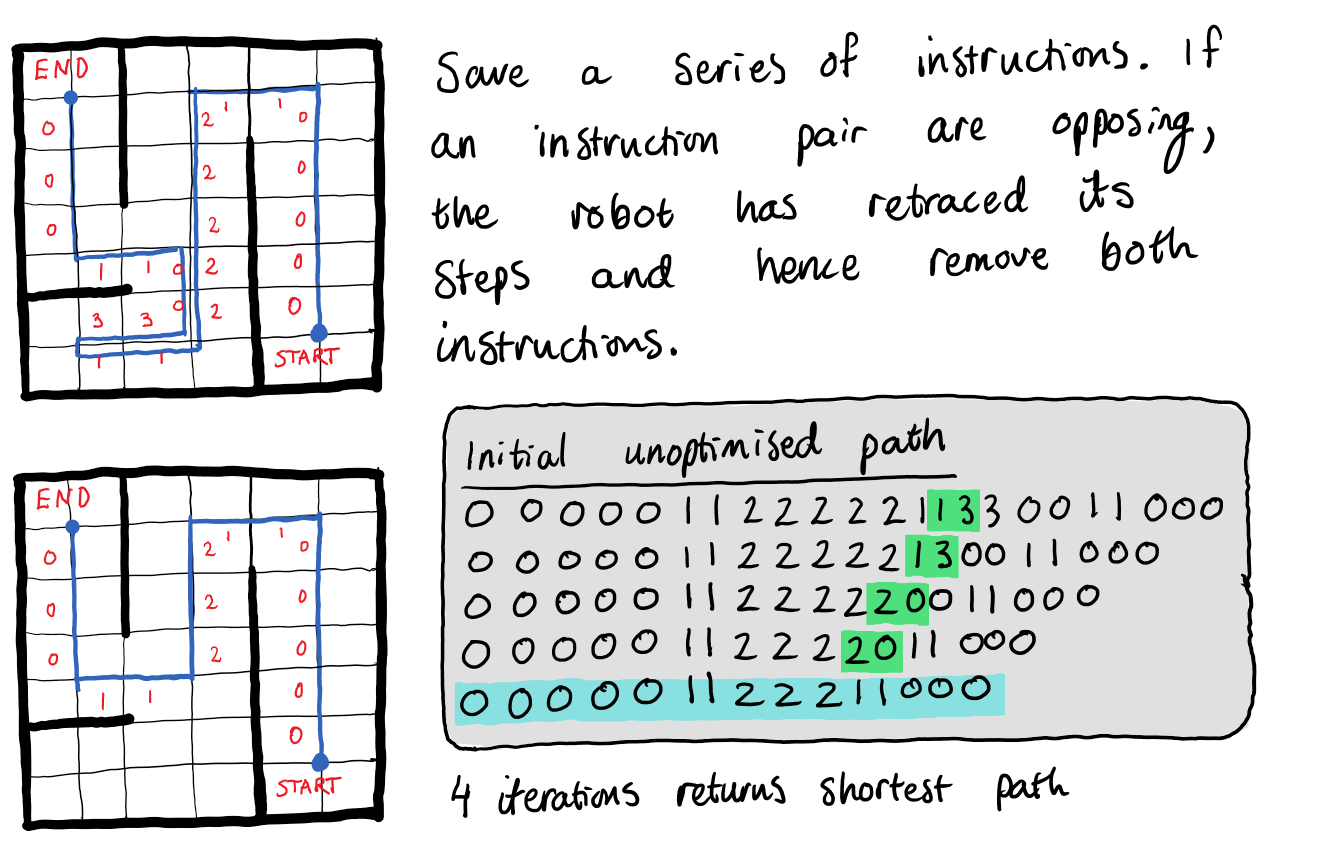 END
0 2 1 1 0
0 2 0
0 2 0
1 1 0 2 0
3 3 0 2 0
1 1 START
Save a series of instructions. If
an instruction pair are opposing,
the robot has retraced its
steps and hence remove both
instructions.
END
0 2 1 1 0
0 2 0
0 2 0
1 1 0
0
START
Initial unoptimised path
0 0 0 0 0 1 1 2 2 2 2 2 1 1 3 3 0 0 1 1 0 0 0
0 0 0 0 0 1 1 2 2 2 2 2 1 3 0 0 1 1 0 0 0
0 0 0 0 0 1 1 2 2 2 2 2 0 0 1 1 0 0 0
0 0 0 0 0 1 1 2 2 2 2 0 1 1 0 0 0
0 0 0 0 0 1 1 2 2 2 1 1 0 0 0
4 iterations returns shortest path